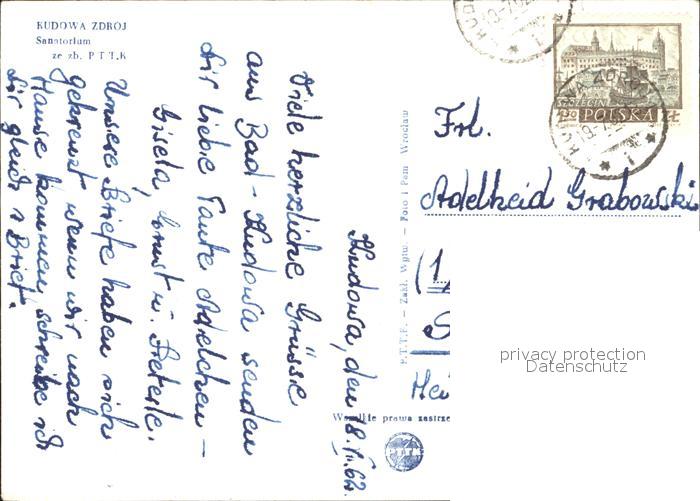 KUDOWA ZDRÓJ
Sanatorium
ze zb. P T T K
Kudowa, den 18.VII.62.
Viele herzliche Grüsse
aus Bad-Kudowa senden
Dir liebe Tante Adelchen –
Gisela, Ernst u. Peterle.
Unsere Briefe haben sich
gekreuzt wenn wir nach
Hause kommen schreibe ich
Dir gleich 1 Brief.
P.T.T.K. – Zakł. Wytw. – Foto i Pam Wrocław
Wszelkie prawa zastrze
PTTK
SZCZECIN
POLSKA
ZŁ
KUDOWA ZDRÓJ
Frl.
Adelheid Grabowski
(1
S
Hei
privacy protection
Datenschutz